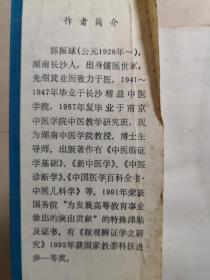 作者简介
郭振球(公元1926年～),
湖南长沙人,出身儒医世家,
先绍箕业而致力于医,1941～
1947年毕业于长沙精益中医
学院,1957年复毕业于南京
中医学院中医教学研究班,现
为湖南中医学院教授、博士生
导师。出版著作有《中医临证
学基础》、《新中医学》、《中医
诊断学》、《中国医学百科全书·
中医儿科学》等,1991年荣获
国务院“为发展高等教育事业
做出的突出贡献”的特殊津贴
及证书,有《微观辨证学之研
究》1992年获国家教委科技进
步一等奖。